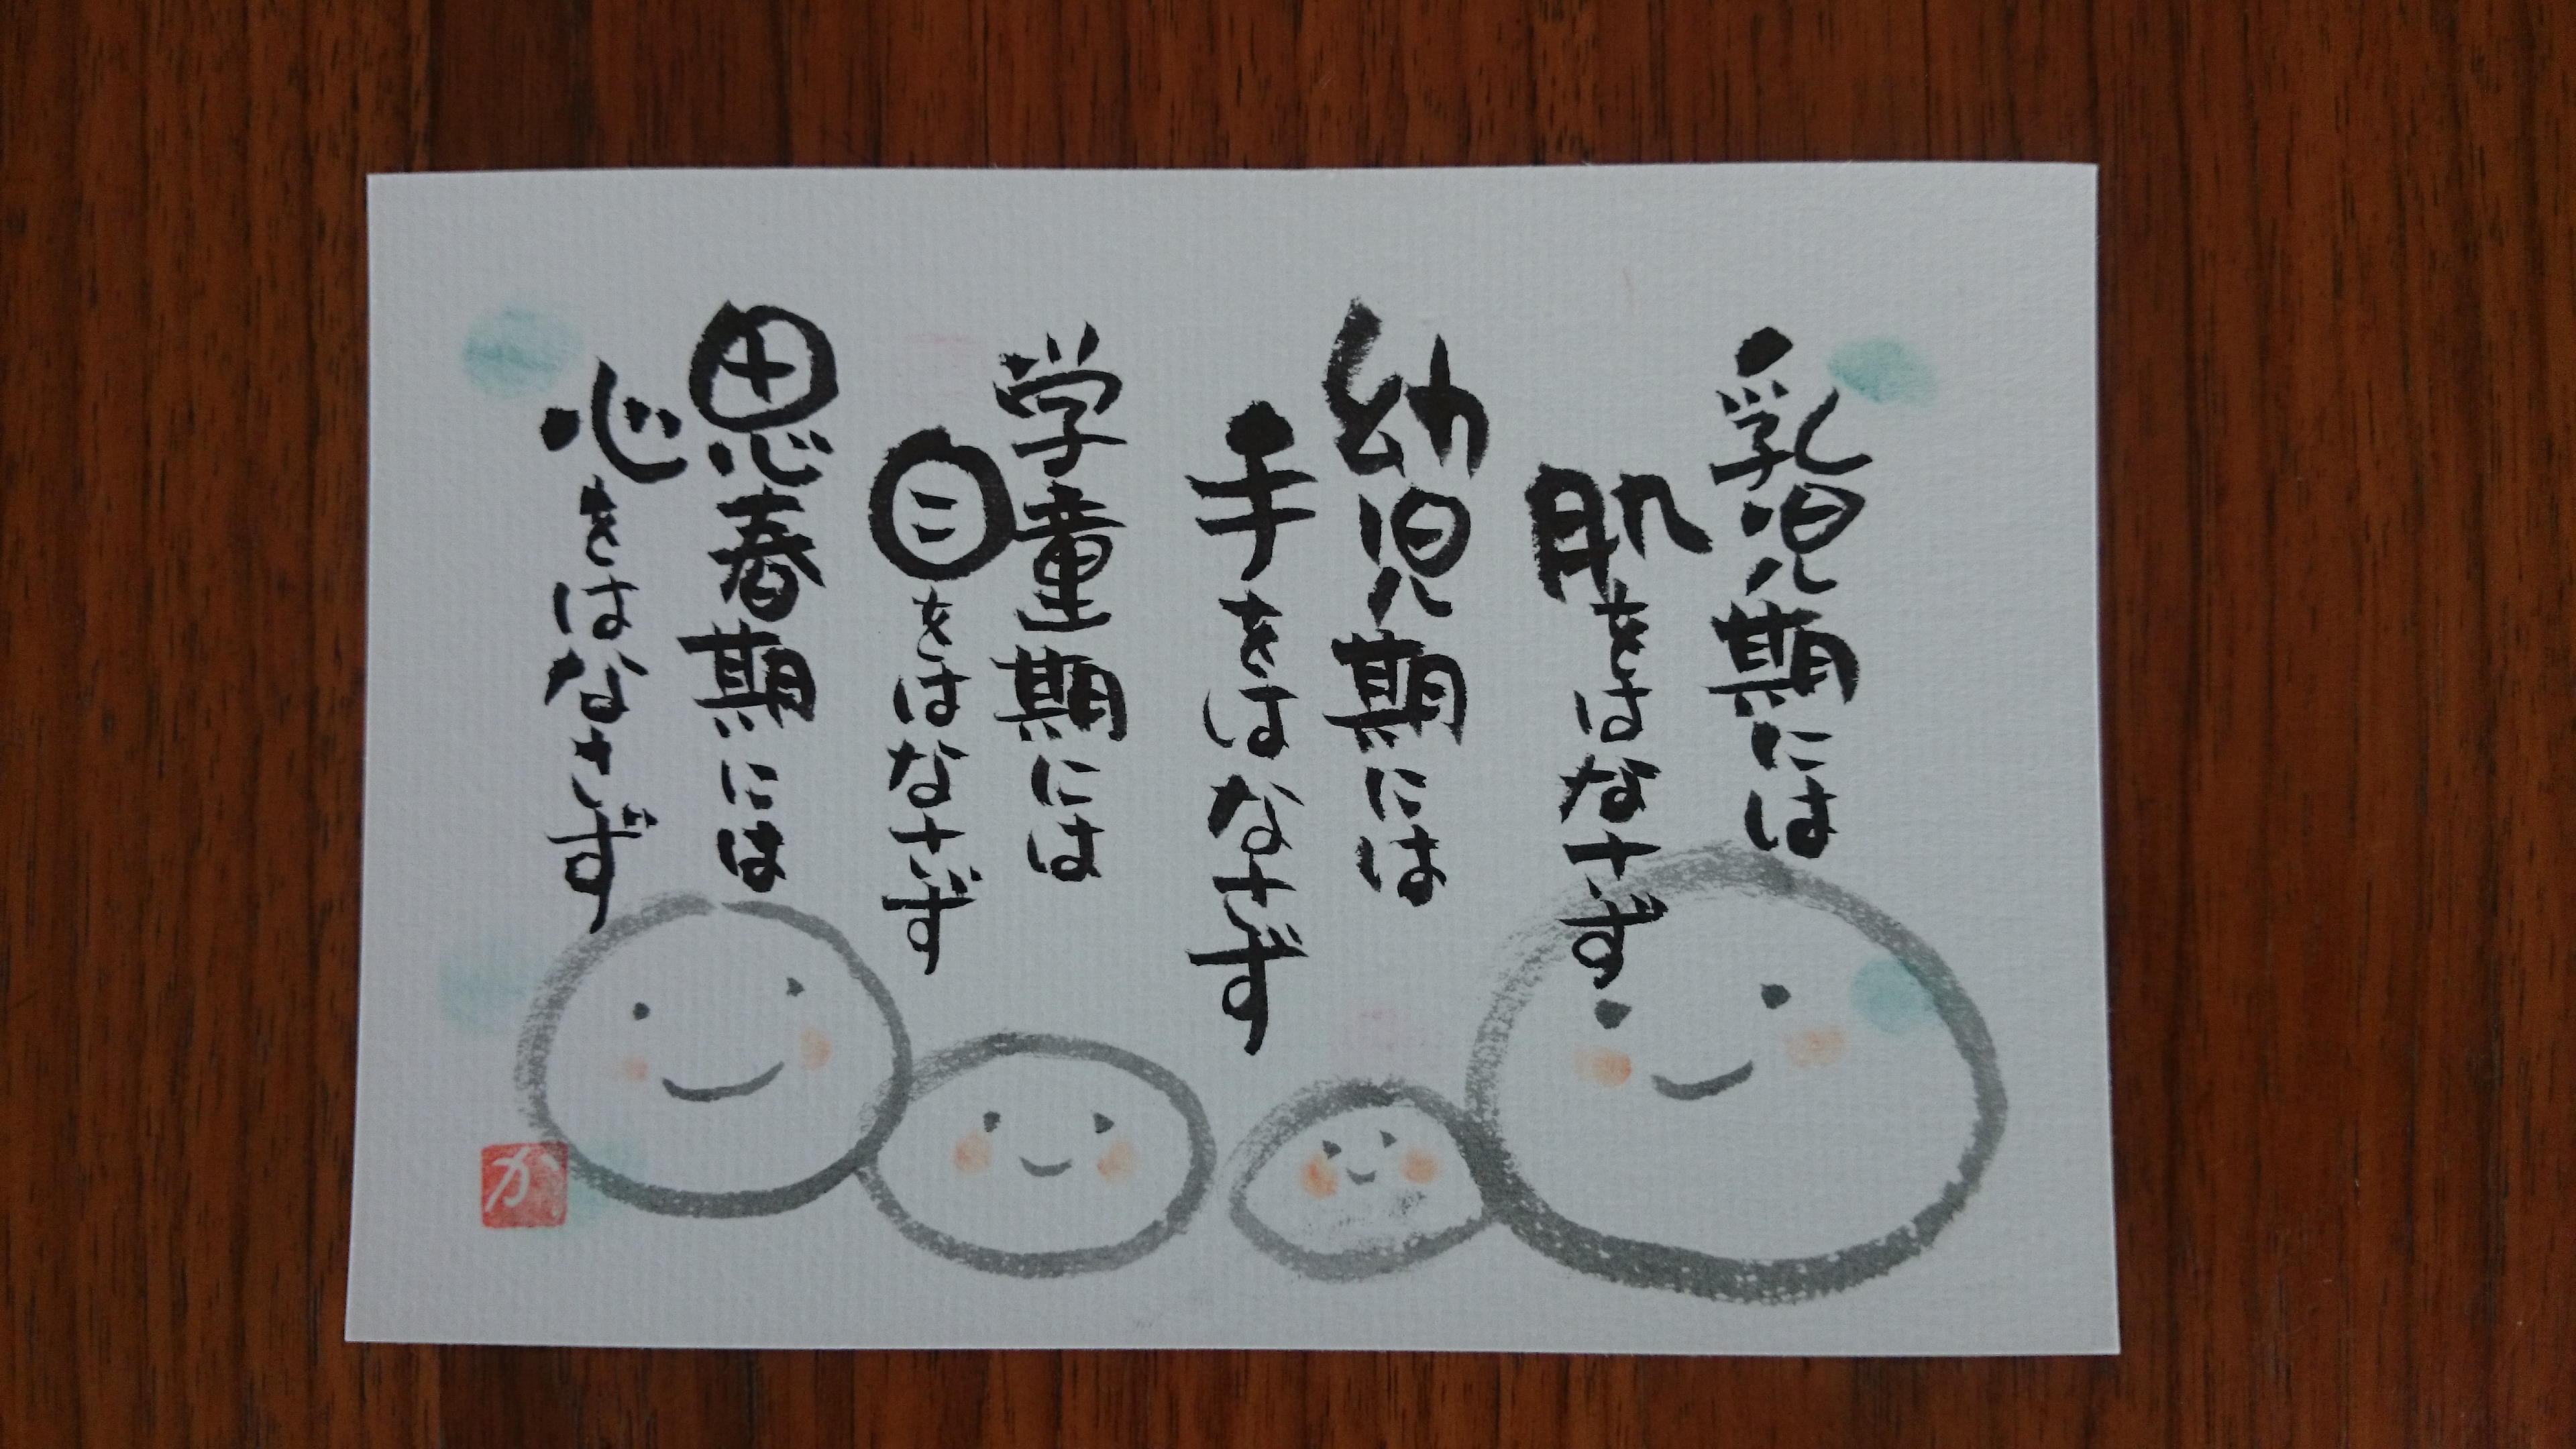 乳児期には
肌をはなさず
幼児期には
手をはなさず
学童期には
目をはなさず
思春期には
心をはなさず
か